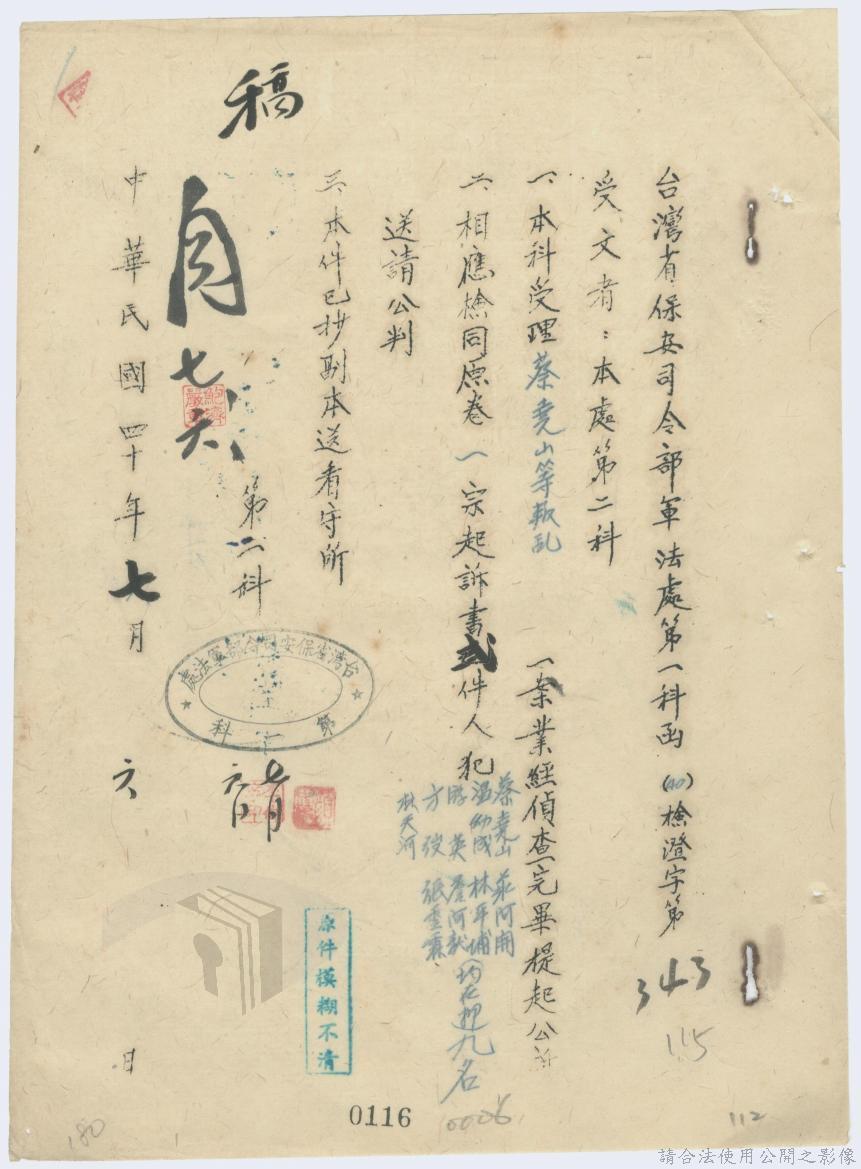 台灣省保安司令部軍法處第一科函 (40) 檢澄字第
343
115
受文者：本處第二科
一、本科受理蔡堯山等叛乱 一案業經偵查完畢提起公訴
二、相應檢同原卷一宗起訴書弍件人犯
蔡堯山 莊阿開
溫幼成 林年
游英
方 張
林天河
均在押九名
送請公判
三、本件已抄副本送看守所
第一科
台灣省保安司令部軍法處
第一科
稿
七六
七月六日
中華民國四十年七月六日
原件模糊不清
0116
0006
112
180
請合法使用公開之影像